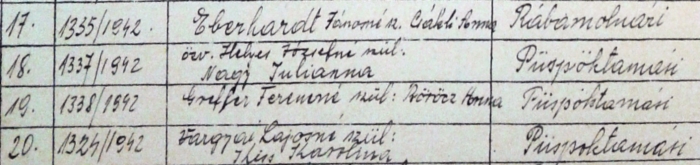 17. 1335/1942. Eberhardt Jánosné sz. Csákli Anna Rábamolnári
18. 1337/1942 özv. Helyes Józsefné szül:
Nagy Julianna Püspöktamási
19. 1338/1942 Greffer Ferencné szül: Böröcz Anna Püspöktamási
20. 1324/1942 Vargyai Lajosné szül:
Kiss Karolina Püspöktamási